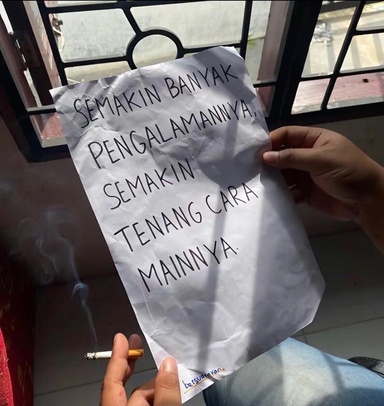 SEMAKIN BANYAK
PENGALAMANNYA..
SEMAKIN
TENANG CARA
MAINNYA.